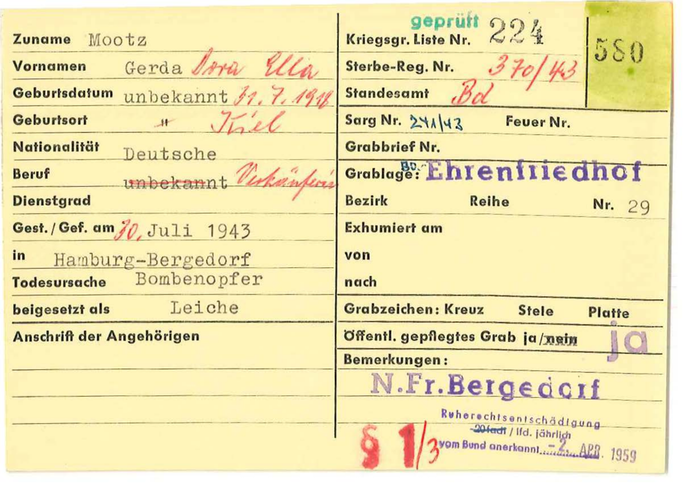 Zuname Mootz
Vornamen Gerda Dora Ella
Geburtsdatum unbekannt 31.7.1918
Geburtsort " Kiel
Nationalität Deutsche
Beruf unbekannt Verkäuferin
Dienstgrad
Gest./Gef. am 30. Juli 1943
in Hamburg-Bergedorf
Todesursache Bombenopfer
beigesetzt als Leiche
Anschrift der Angehörigen
geprüft
Kriegsgr. Liste Nr. 224
580
Sterbe-Reg. Nr. 370/43
Standesamt Bd
Sarg Nr. 241/43 Feuer Nr.
Grabbrief Nr.
Grablage: Bd.- Ehrenfriedhof
Bezirk Reihe Nr. 29
Exhumiert am
von
nach
Grabzeichen: Kreuz Stele Platte
Öffentl. gepflegtes Grab ja/nein ja
Bemerkungen:
N.Fr.Bergedorf
Ruherechtsentschädigung
/ lfd. jährlich
vom Bund anerkannt -2. APR. 1959
§ 1/3